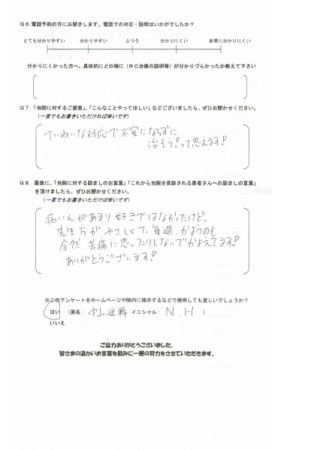 Q6.電話予約の方にお聞きします。電話での対応・説明はいかがでしたか?
とても分かりやすい 分かりやすい ふつう 分かりにくい 非常に分かりにくい
分かりにくかった方へ。具体的にどの様に(RC治療の説明等)が分かりづらかったか教えて下さい
Q7.「当院に対するご感想」、「こんなことやってほしい」などございましたら、ぜひお聞かせください。
(一言でもお書きいただければ幸いです)
ていねいな対応で不安にならずに
治そう!って思えます!
Q8.最後に、「当院に対する励ましのお言葉」「これから当院を受診される患者さんへの励ましの言葉」
を頂けましたら、ぜひお聞かせください。
(一言でもお書きいただければ幸いです)
病いんがあまり好きではなかったけど、
先生方がやさしくて、毎週かようのも
全然苦痛に思ったりしないでかよえてます!
ありがとうございます!
※このアンケートをホームページや院内に掲示するなどで使用しても宜しいでしょうか?
はい (実名: イニシャル: N.H )
いいえ
ご協力ありがとうございました。
皆さまの温かいお言葉を励みに一層の努力をさせていただきます。